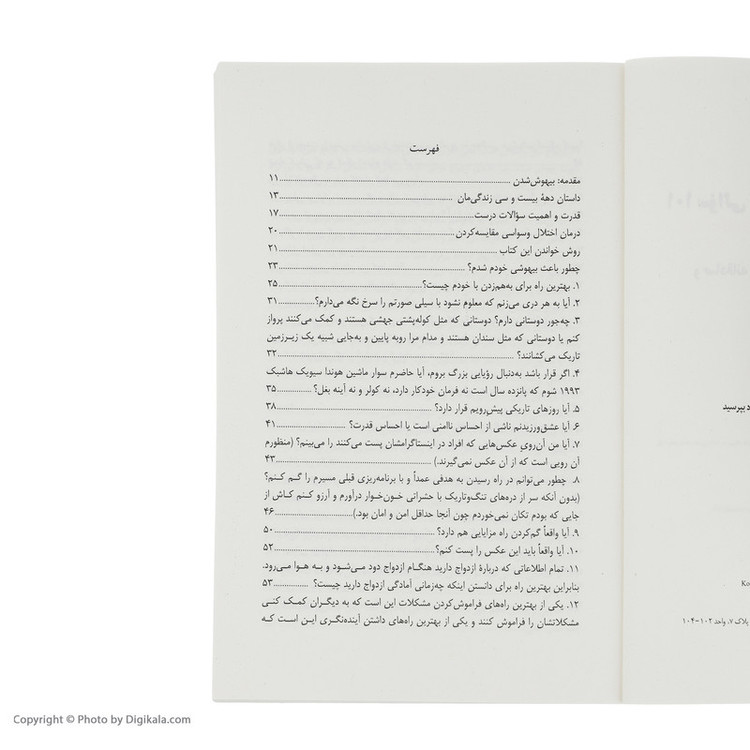 فهرست
مقدمه: بیهوش‌شدن ........ ۱۱
داستان دههٔ بیست و سی زندگی‌مان ........ ۱۳
قدرت و اهمیت سؤالات درست ........ ۱۷
درمان اختلال وسواسی مقایسه‌کردن ........ ۲۰
روش خواندن این کتاب ........ ۲۱
چطور باعث بیهوشی خودم شدم؟ ........ ۲۳
۱. بهترین راه برای به‌هم‌زدن با خودم چیست؟ ........ ۲۵
۲. آیا به هر دری می‌زنم که معلوم نشود با سیلی صورتم را سرخ نگه می‌دارم؟ ........ ۳۱
۳. چه‌جور دوستانی دارم؟ دوستانی که مثل کوله‌پشتی جهشی هستند و کمک می‌کنند پرواز
کنم یا دوستانی که مثل سندان هستند و مدام مرا روبه پایین و به‌جایی شبیه یک زیرزمین
تاریک می‌کشانند؟ ........ ۳۲
۴. اگر قرار باشد به‌دنبال رؤیایی بزرگ بروم، آیا حاضرم سوار ماشین هوندا سیویک هاشبک
۱۹۹۳ شوم که پانزده سال است نه فرمان خودکار دارد، نه کولر و نه آینه بغل؟ ........ ۳۵
۵. آیا روزهای تاریکی پیش‌رویم قرار دارد؟ ........ ۳۸
۶. آیا عشق‌ورزیدنم ناشی از احساس ناامنی است یا احساس قدرت؟ ........ ۴۱
۷. آیا من آن‌رویِ عکس‌هایی که افراد در اینستاگرامشان پست می‌کنند را می‌بینم؟ (منظورم
آن رویی است که از آن عکس نمی‌گیرند.) ........ ۴۳
۸. چطور می‌توانم در راه رسیدن به هدفی عمداً و با برنامه‌ریزی قبلی مسیرم را گم کنم؟
(بدون آنکه سر از دره‌های تنگ‌وتاریک با حشراتی خون‌خوار درآورم و آرزو کنم کاش از
جایی که بودم تکان نمی‌خوردم چون آنجا حداقل امن و امان بود.) ........ ۴۶
۹. آیا واقعاً گم‌کردن راه مزایایی هم دارد؟ ........ ۵۰
۱۰. آیا واقعاً باید این عکس را پست کنم؟ ........ ۵۲
۱۱. تمام اطلاعاتی که دربارهٔ ازدواج دارید هنگام ازدواج دود می‌شود و به هوا می‌رود.
بنابراین بهترین راه برای دانستن اینکه چه‌زمانی آمادگی ازدواج دارید چیست؟ ........ ۵۳
۱۲. یکی از بهترین راه‌های فراموش‌کردن مشکلات این است که به دیگران کمک کنی
مشکلاتشان را فراموش کنند و یکی از بهترین راه‌های داشتن آینده‌نگری این است که
د بپرسید
Ko
پلاک ۷، واحد ۱۰۲-۱۰۴
Copyright © Photo by Digikala.com